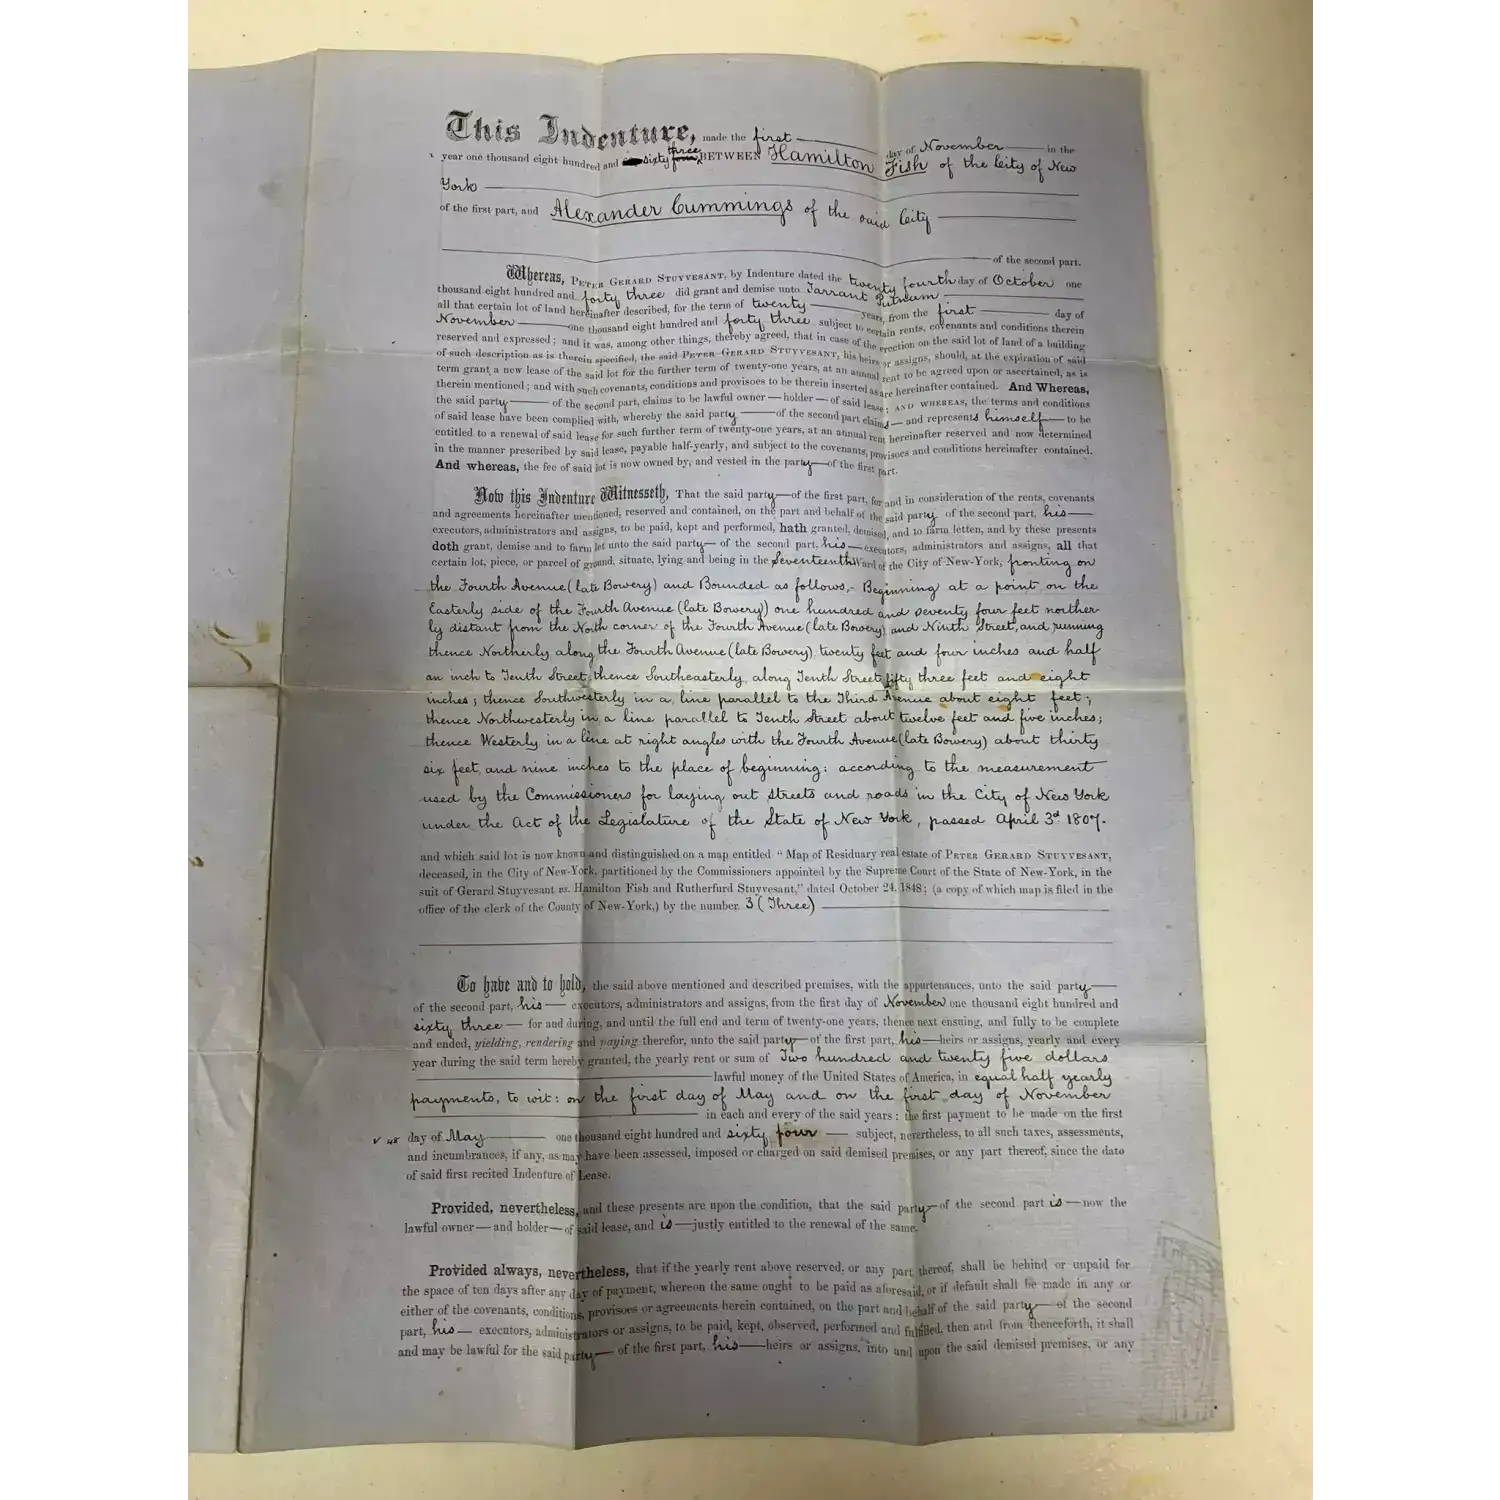 This Indenture, made the first day of November in the
year one thousand eight hundred and sixty three BETWEEN Hamilton Fish of the City of New
York
of the first part, and Alexander Cummings of the said City
of the second part.
Whereas, PETER GERARD STUYVESANT, by Indenture dated the twenty fourth day of October one
thousand eight hundred and forty three did grant and demise unto Tarrant Putnam
all that certain lot of land hereinafter described, for the term of twenty years, from the first day of
November one thousand eight hundred and forty three subject to certain rents, covenants and conditions therein
reserved and expressed; and it was, among other things, thereby agreed, that in case of the erection on the said lot of land of a building
of such description as is therein specified, the said PETER GERARD STUYVESANT, his heirs or assigns, should, at the expiration of said
term grant a new lease of the said lot for the further term of twenty-one years, at an annual rent to be agreed upon or ascertained, as is
therein mentioned; and with such covenants, conditions and provisoes to be therein inserted as are hereinafter contained. And Whereas,
the said party of the second part, claims to be lawful owner holder of said lease; AND WHEREAS, the terms and conditions
of said lease have been complied with, whereby the said party of the second part claims and represents himself to be
entitled to a renewal of said lease for such further term of twenty-one years, at an annual rent hereinafter reserved and now determined
in the manner prescribed by said lease, payable half-yearly, and subject to the covenants, provisoes and conditions hereinafter contained.
And whereas, the fee of said lot is now owned by, and vested in the party of the first part.
Now this Indenture Witnesseth, That the said party of the first part, for and in consideration of the rents, covenants
and agreements hereinafter mentioned, reserved and contained, on the part and behalf of the said party of the second part, his
executors, administrators and assigns, to be paid, kept and performed, hath granted, demised, and to farm letten, and by these presents
doth grant, demise and to farm let unto the said party of the second part, his executors, administrators and assigns, all that
certain lot, piece, or parcel of ground, situate, lying and being in the Seventeenth Ward of the City of New-York, fronting on
the Fourth Avenue (late Bowery) and Bounded as follows,- Beginning at a point on the
Easterly side of the Fourth Avenue (late Bowery) one hundred and seventy four feet norther-
ly distant from the North corner of the Fourth Avenue (late Bowery) and Ninth Street, and running
thence Northerly along the Fourth Avenue (late Bowery) twenty feet and four inches and half
an inch to Tenth Street, thence Southeasterly along Tenth Street fifty three feet and eight
inches; thence Southwesterly in a line parallel to the Third Avenue about eight feet;
thence Northwesterly in a line parallel to Tenth Street about twelve feet and five inches;
thence Westerly in a line at right angles with the Fourth Avenue (late Bowery) about thirty
six feet and nine inches to the place of beginning: according to the measurement
used by the Commissioners for laying out streets and roads in the City of New York
under the Act of the Legislature of the State of New York, passed April 3d 1807.
and which said lot is now known and distinguished on a map entitled "Map of Residuary real estate of PETER GERARD STUYVESANT,
deceased, in the City of New-York, partitioned by the Commissioners appointed by the Supreme Court of the State of New-York, in the
suit of Gerard Stuyvesant vs. Hamilton Fish and Rutherfurd Stuyvesant," dated October 24, 1848; (a copy of which map is filed in the
office of the clerk of the County of New-York,) by the number 3 (Three)
To have and to hold, the said above mentioned and described premises, with the appurtenances, unto the said party
of the second part, his executors, administrators and assigns, from the first day of November one thousand eight hundred and
sixty three for and during, and until the full end and term of twenty-one years, thence next ensuing, and fully to be complete
and ended, yielding, rendering and paying therefor, unto the said party of the first part, his heirs or assigns, yearly and every
year during the said term hereby granted, the yearly rent or sum of Two hundred and twenty five dollars
lawful money of the United States of America, in equal half yearly
payments, to wit: on the first day of May and on the first day of November
in each and every of the said years: the first payment to be made on the first
day of May one thousand eight hundred and sixty four subject, nevertheless, to all such taxes, assessments,
and incumbrances, if any, as may have been assessed, imposed or charged on said demised premises, or any part thereof, since the date
of said first recited Indenture of Lease.
Provided, nevertheless, and these presents are upon the condition, that the said party of the second part is now the
lawful owner and holder of said lease, and is justly entitled to the renewal of the same.
Provided always, nevertheless, that if the yearly rent above reserved, or any part thereof, shall be behind or unpaid for
the space of ten days after any day of payment, whereon the same ought to be paid as aforesaid, or if default shall be made in any or
either of the covenants, conditions, provisoes or agreements herein contained, on the part and behalf of the said party of the second
part, his executors, administrators or assigns, to be paid, kept, observed, performed and fulfilled, then and from thenceforth, it shall
and may be lawful for the said party of the first part, his heirs or assigns, into and upon the said demised premises, or any